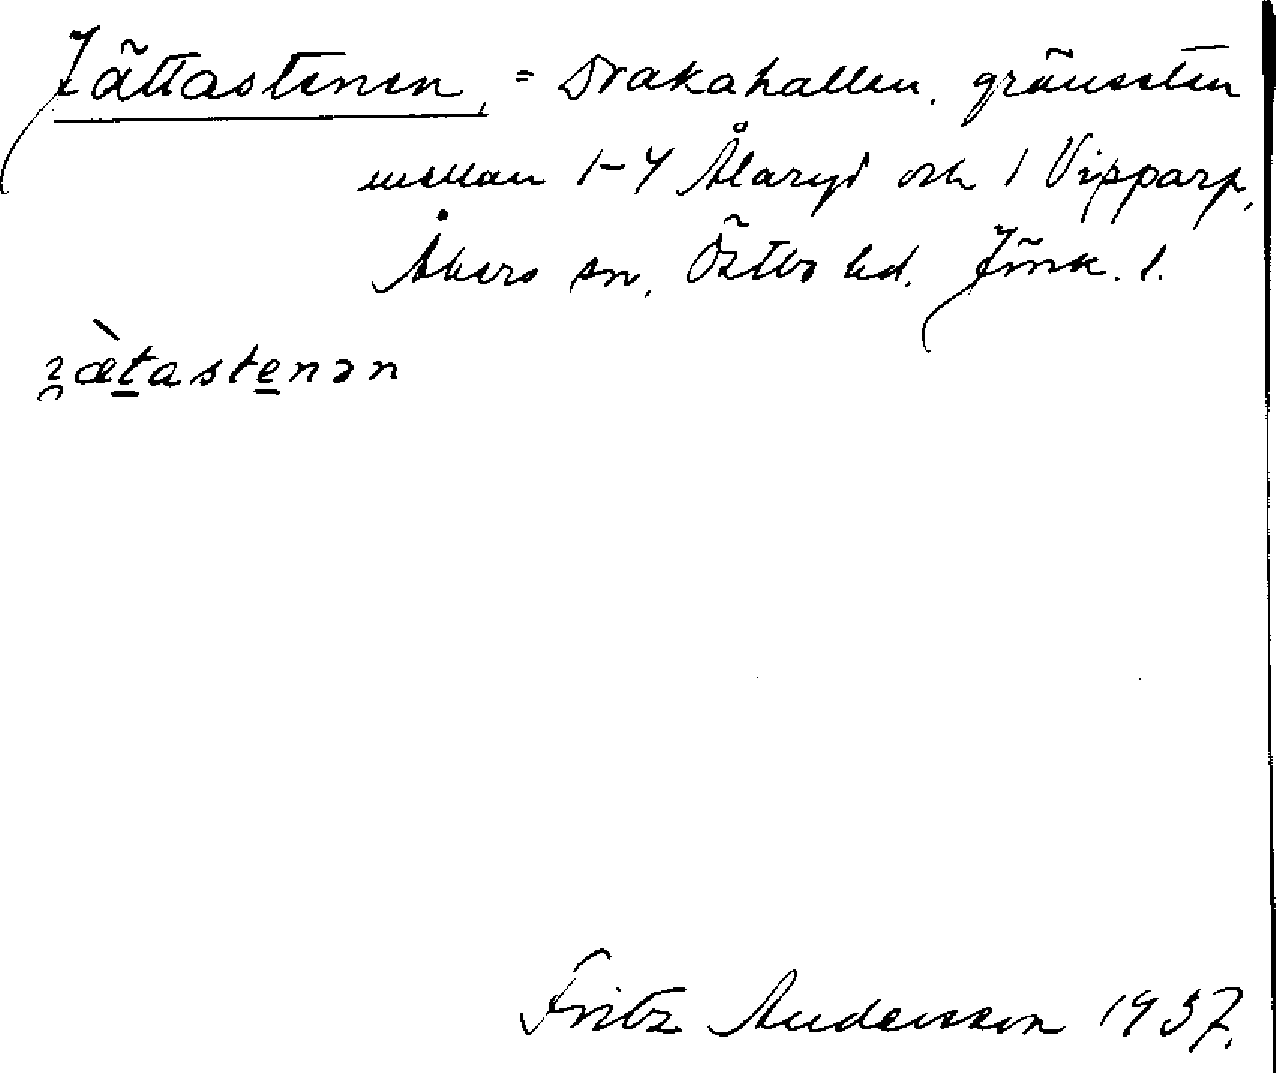 Jättastenen, = Drakahallen, gränssten
mellan 1-4 Ålaryd och 1 Vipparp,
Åkers sn, Östbo hd. Jönk. l.
ʒæ̀tastenən
Fritz Andersson 1937.